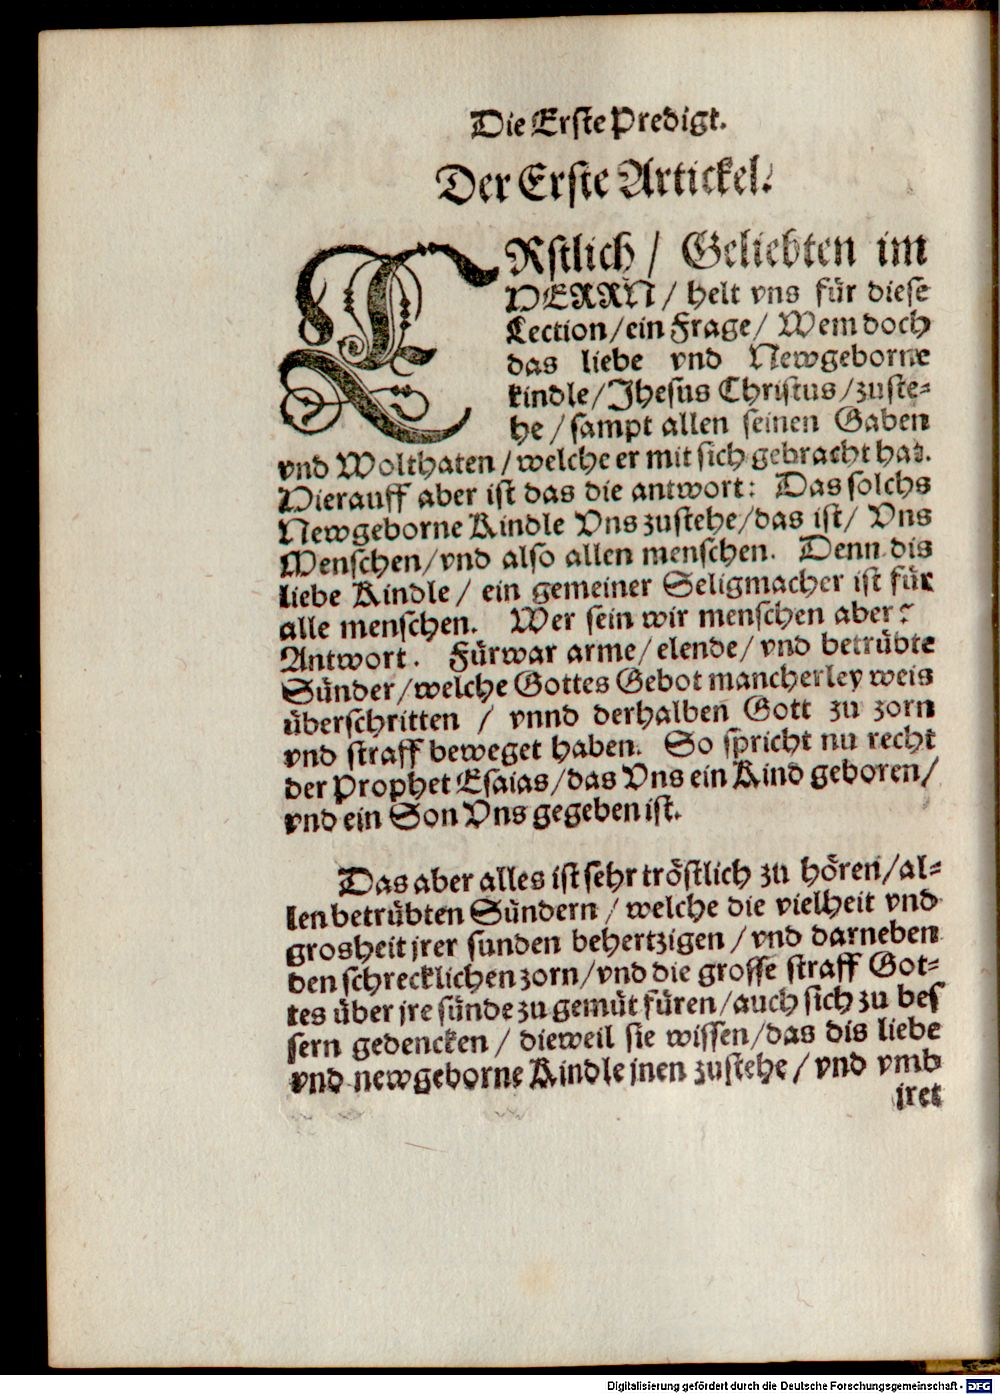 Die Erste Predigt.
Der Erste Artickel.
ERstlich / Geliebten im
HERRN / helt vns für diese
Lection / ein Frage / Wem doch
das liebe vnd Newgeborne
kindle / Jhesus Christus / zuste-
he / sampt allen seinen Gaben
vnd Wolthaten / welche er mit sich gebracht hat.
Hierauff aber ist das die antwort: Das solchs
Newgeborne Kindle Vns zustehe / das ist / Vns
Menschen / vnd also allen menschen. Denn dis
liebe Kindle / ein gemeiner Seligmacher ist für
alle menschen. Wer sein wir menschen aber?
Antwort. Fürwar arme / elende / vnd betrübte
Sünder / welche Gottes Gebot mancherley weis
überschritten / vnnd derhalben Gott zu zorn
vnd straff beweget haben. So spricht nu recht
der Prophet Esaias / das Vns ein Kind geboren /
vnd ein Son Vns gegeben ist.
Das aber alles ist sehr tröstlich zu hören / al-
len betrübten Sündern / welche die vielheit vnd
grosheit jrer sunden behertzigen / vnd darneben
den schrecklichen zorn / vnd die grosse straff Got-
tes über jre sünde zu gemüt füren / auch sich zu bes
sern gedencken / dieweil sie wissen / das dis liebe
vnd newgeborne Kindle jnen zustehe / vnd vmb
jret
Digitalisierung gefördert durch die Deutsche Forschungsgemeinschaft - DFG